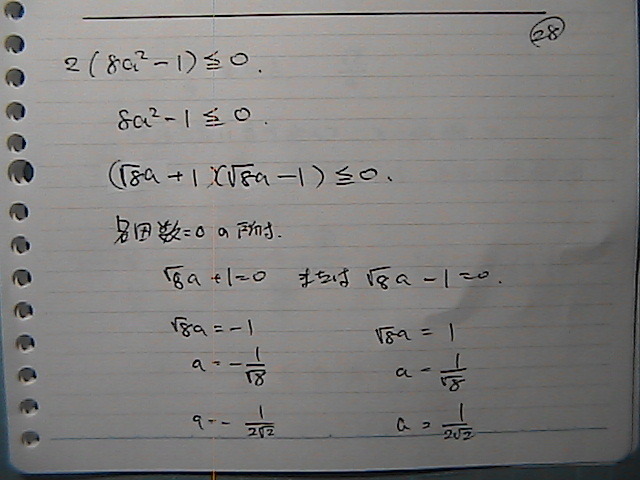 28
2(8a²-1)≦0.
8a²-1≦0.
(√8a+1)(√8a-1)≦0.
各因数=0の所は.
√8a+1=0 または √8a-1=0.
√8a=-1 √8a=1
a=-1/√8 a=1/√8
a=-1/2√2 a=1/2√2